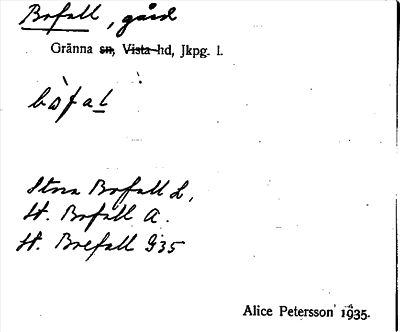 Bofall, gård
Gränna sn, Vista hd, Jkpg. l.
bòfal
Stora Bofall L,
St. Bofall A.
St. Brefall G35
Alice Petersson 1935.